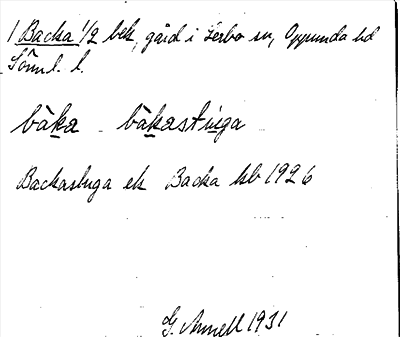 1 Backa 1/2 bek, gård i Lerbo sn, Oppunda hd
Söml. l.
bàka bàkastiuga
Backastuga ek Backa kb 1926
G. Annell 1931